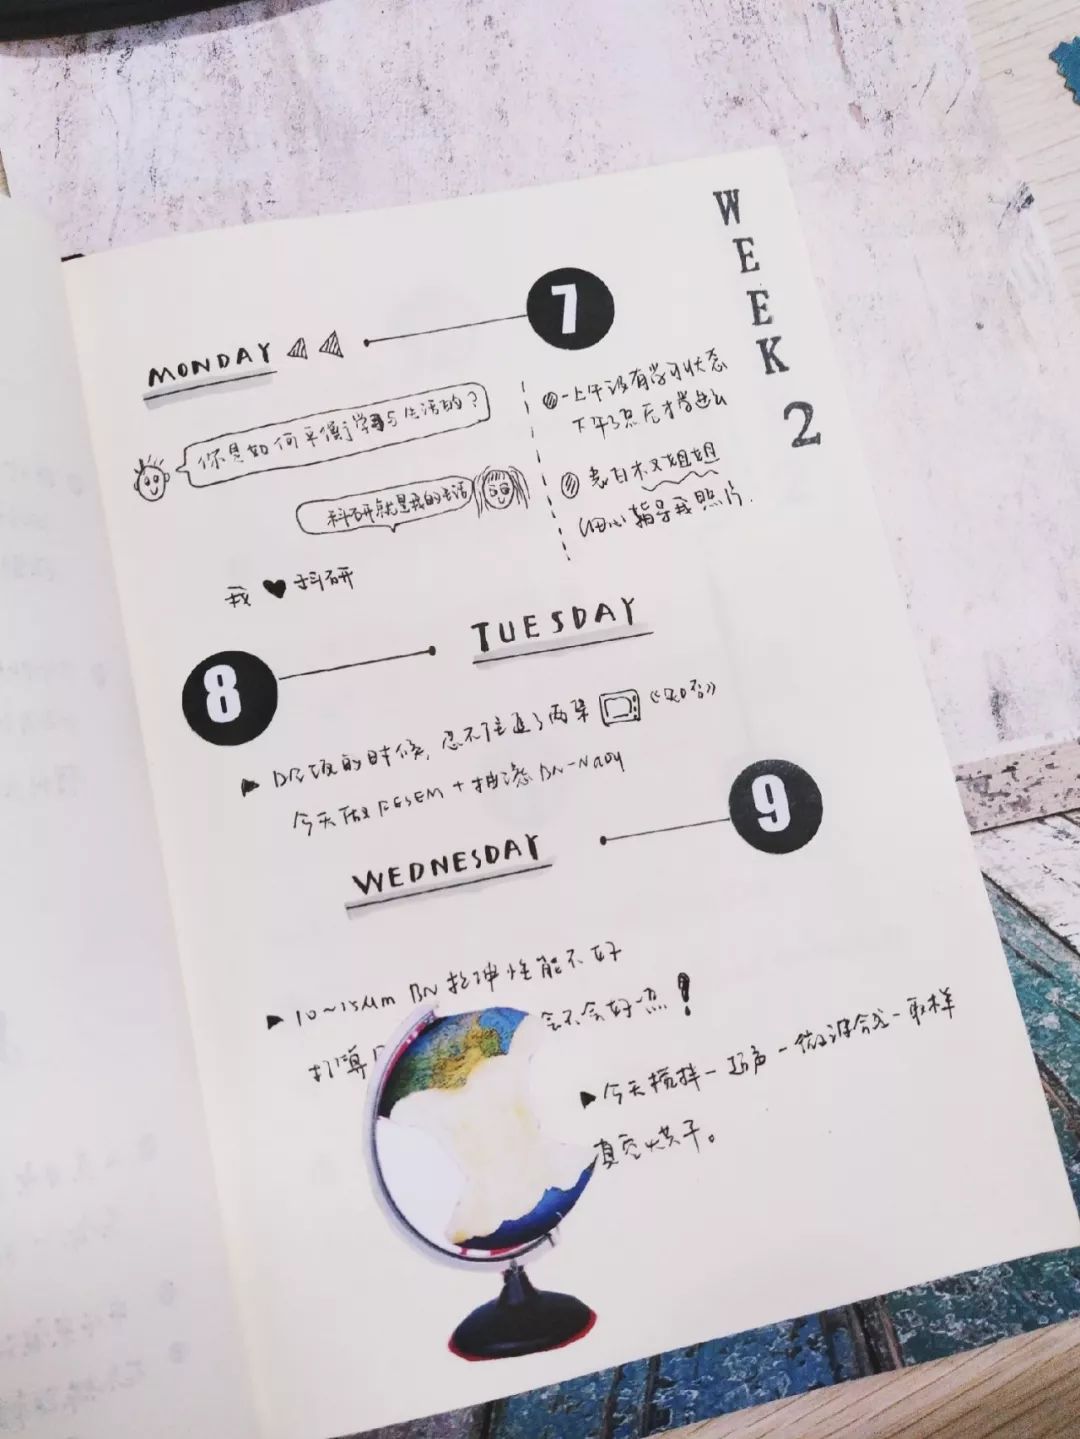 WEEK 2
MONDAY
7
你是如何平衡学习与生活的?
科研就是我的生活
我 ♥ 科研
-上午没有学习状态
下午3点后才学进去
表白木又姐姐
细心指导我照片.
TUESDAY
8
吃饭的时候,忍不住追了两集 《知否》
今天做FESEM + 抽滤 BN-NaOH
WEDNESDAY
9
10~15μm BN 拉伸性能不好
打算 会不会好一点!
今天搅拌-超声-微波合成-取样
真空烘干。